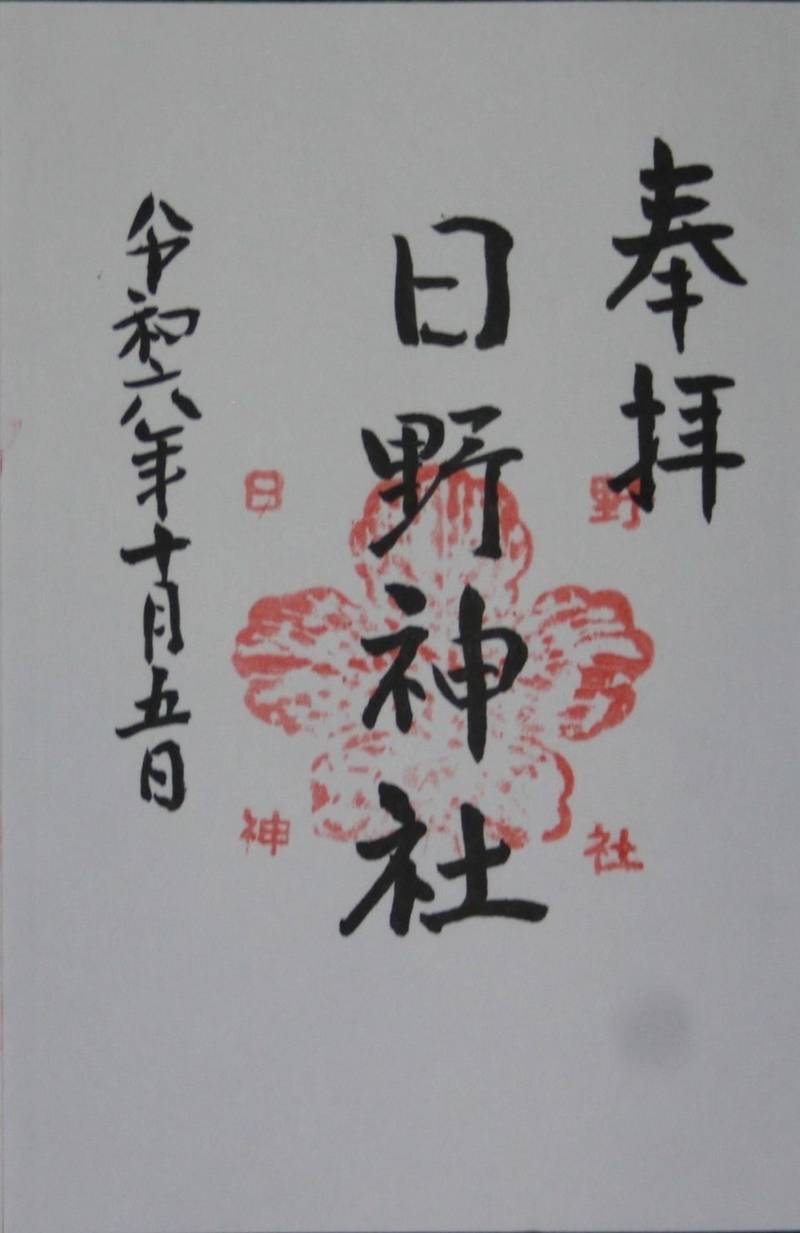 奉拝
日野神社
令和六年十月五日
日野
神社